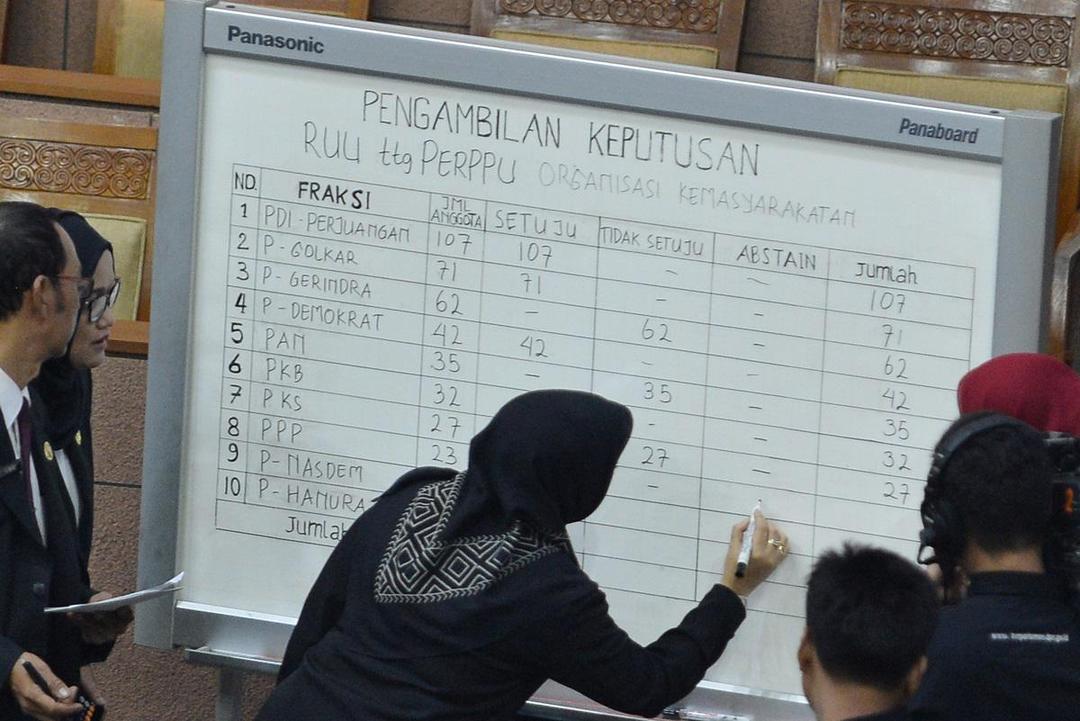 Panasonic
Panaboard
PENGAMBILAN KEPUTUSAN
RUU ttg PERPPU ORGANISASI KEMASYARAKATAN
NO. FRAKSI JML ANGGOTA SETUJU TIDAK SETUJU ABSTAIN Jumlah
1 PDI-PERJUANGAN 107 107 - - 107
2 P-GOLKAR 71 71 - - 71
3 P-GERINDRA 62 - 62 - 62
4 P-DEMOKRAT 42 42 - - 42
5 PAN 35 - 35 - 35
6 PKB 32 - - 32
7 PKS 27 27 - 27
8 PPP 23 -
9 P-NASDEM
10 P-HANURA
Jumlah